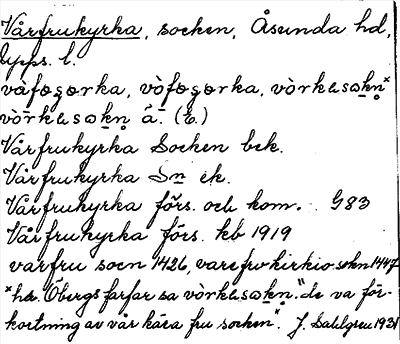 Vårfrukyrka, socken, Åsunda hd,
Upps. l.
våfǫgǫrka, vòfǫgǫrka, vòrkɩsǫkn̥ˣ
vòrkɩsǫkn̥ å. (E.)
Vårfrukyrka Socken bek.
Vårfrukyrka Sn ek.
Vårfrukyrka förs. och kom. G83
Vårfrukyrka förs. kb 1919
varfru socn 1426, varefrwkirkio sokn 1447
ˣhd. Öbergs farfar sa vòrkɩsǫkn̥. "de va för-
kortning av vår kära fru socken". J. Sahlgren 1931